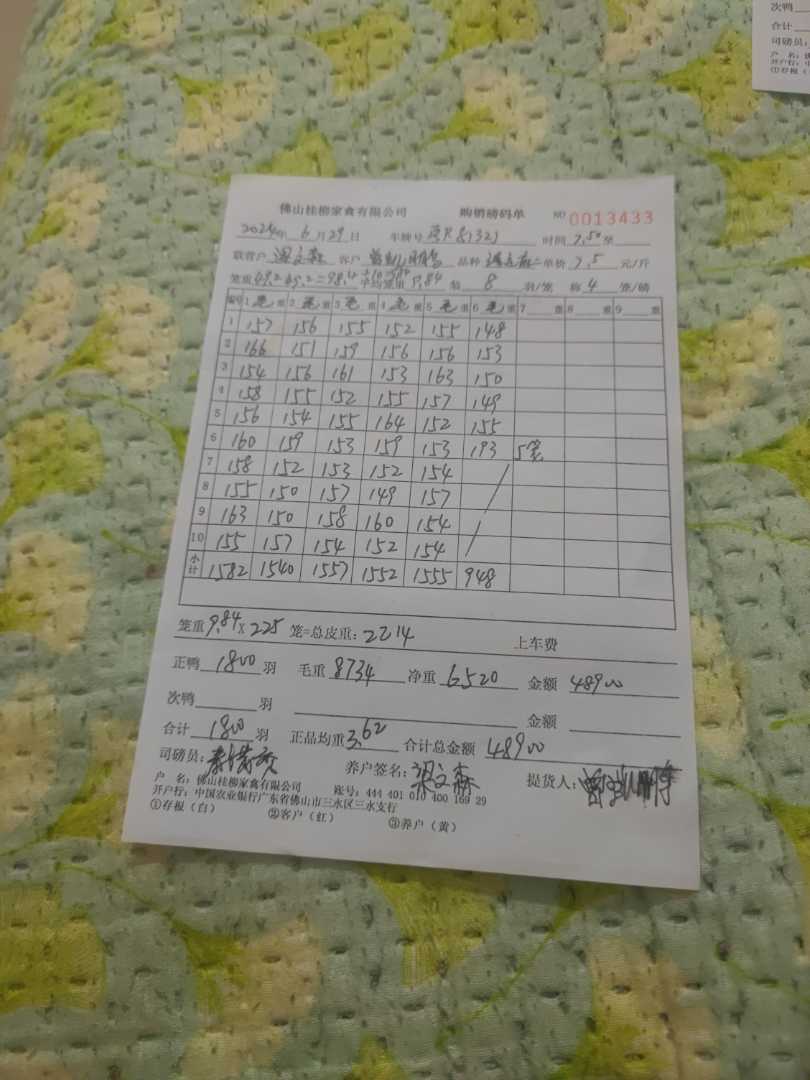 次鸭
合计
司磅员:
佛山桂柳家禽有限公司 购销磅码单 NO 0013433
2024年 6月29日 车牌号 时间 7.50
联营户 客户 品种 单价 7.5 元/斤
笼重 49.2 49.2=98.4÷10=9.84 平均笼重 9.84 装 8 羽/笼 称 4 笼/磅
编号 1 毛 重 2 毛 重 3 毛 重 4 毛 重 5 毛 重 6 毛 重 7 重 8 重 9 重
1 157 156 155 152 155 148
2 166 151 159 156 156 153
3 154 156 161 153 163 150
4 158 155 152 155 157 149
5 156 154 155 164 152 155
6 160 159 153 159 153 193 5笼
7 158 152 153 152 154
8 155 150 157 149 157
9 163 150 158 160 154
10 155 157 154 152 154
小计 1582 1540 1557 1552 1555 948
笼重 9.84 X 225 笼=总皮重: 2214 上车费
正鸭 1800 羽 毛重 8734 净重 6520 金额 48900
次鸭 羽 金额
合计 1800 羽 正品均重 3.62 合计总金额 48900
司磅员: 养户签名: 梁文森 提货人:
户 名: 佛山桂柳家禽有限公司 账号: 444 401 010 400 169 29
开户行: 中国农业银行广东省佛山市三水区三水支行
①存根(白) ②客户(红) ③养户(黄)